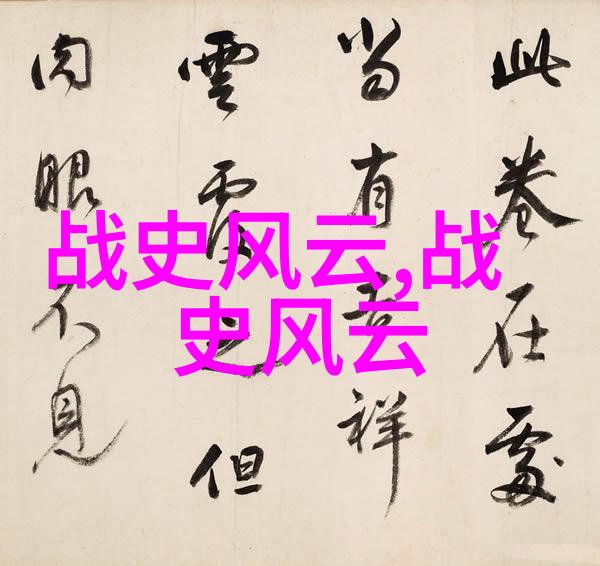 此卷在處
當有吉祥
雲覆之但
肉眼不見
战史风云,战
史风云